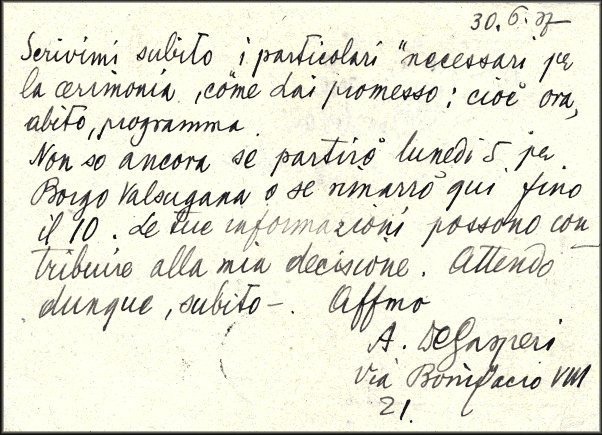 30.6.37
Scrivimi subito i particolari necessari per
la cerimonia, come dai promesso; cioè ora,
abito, programma.
Non so ancora se partirò lunedì 5 per
Borgo Valsugana o se rimarrò qui fino
il 10. Le tue informazioni possono con
tribuire alla mia decisione. Attendo
dunque, subito –. Affmo
A. DeGasperi
Via Bonifacio VIII
21.